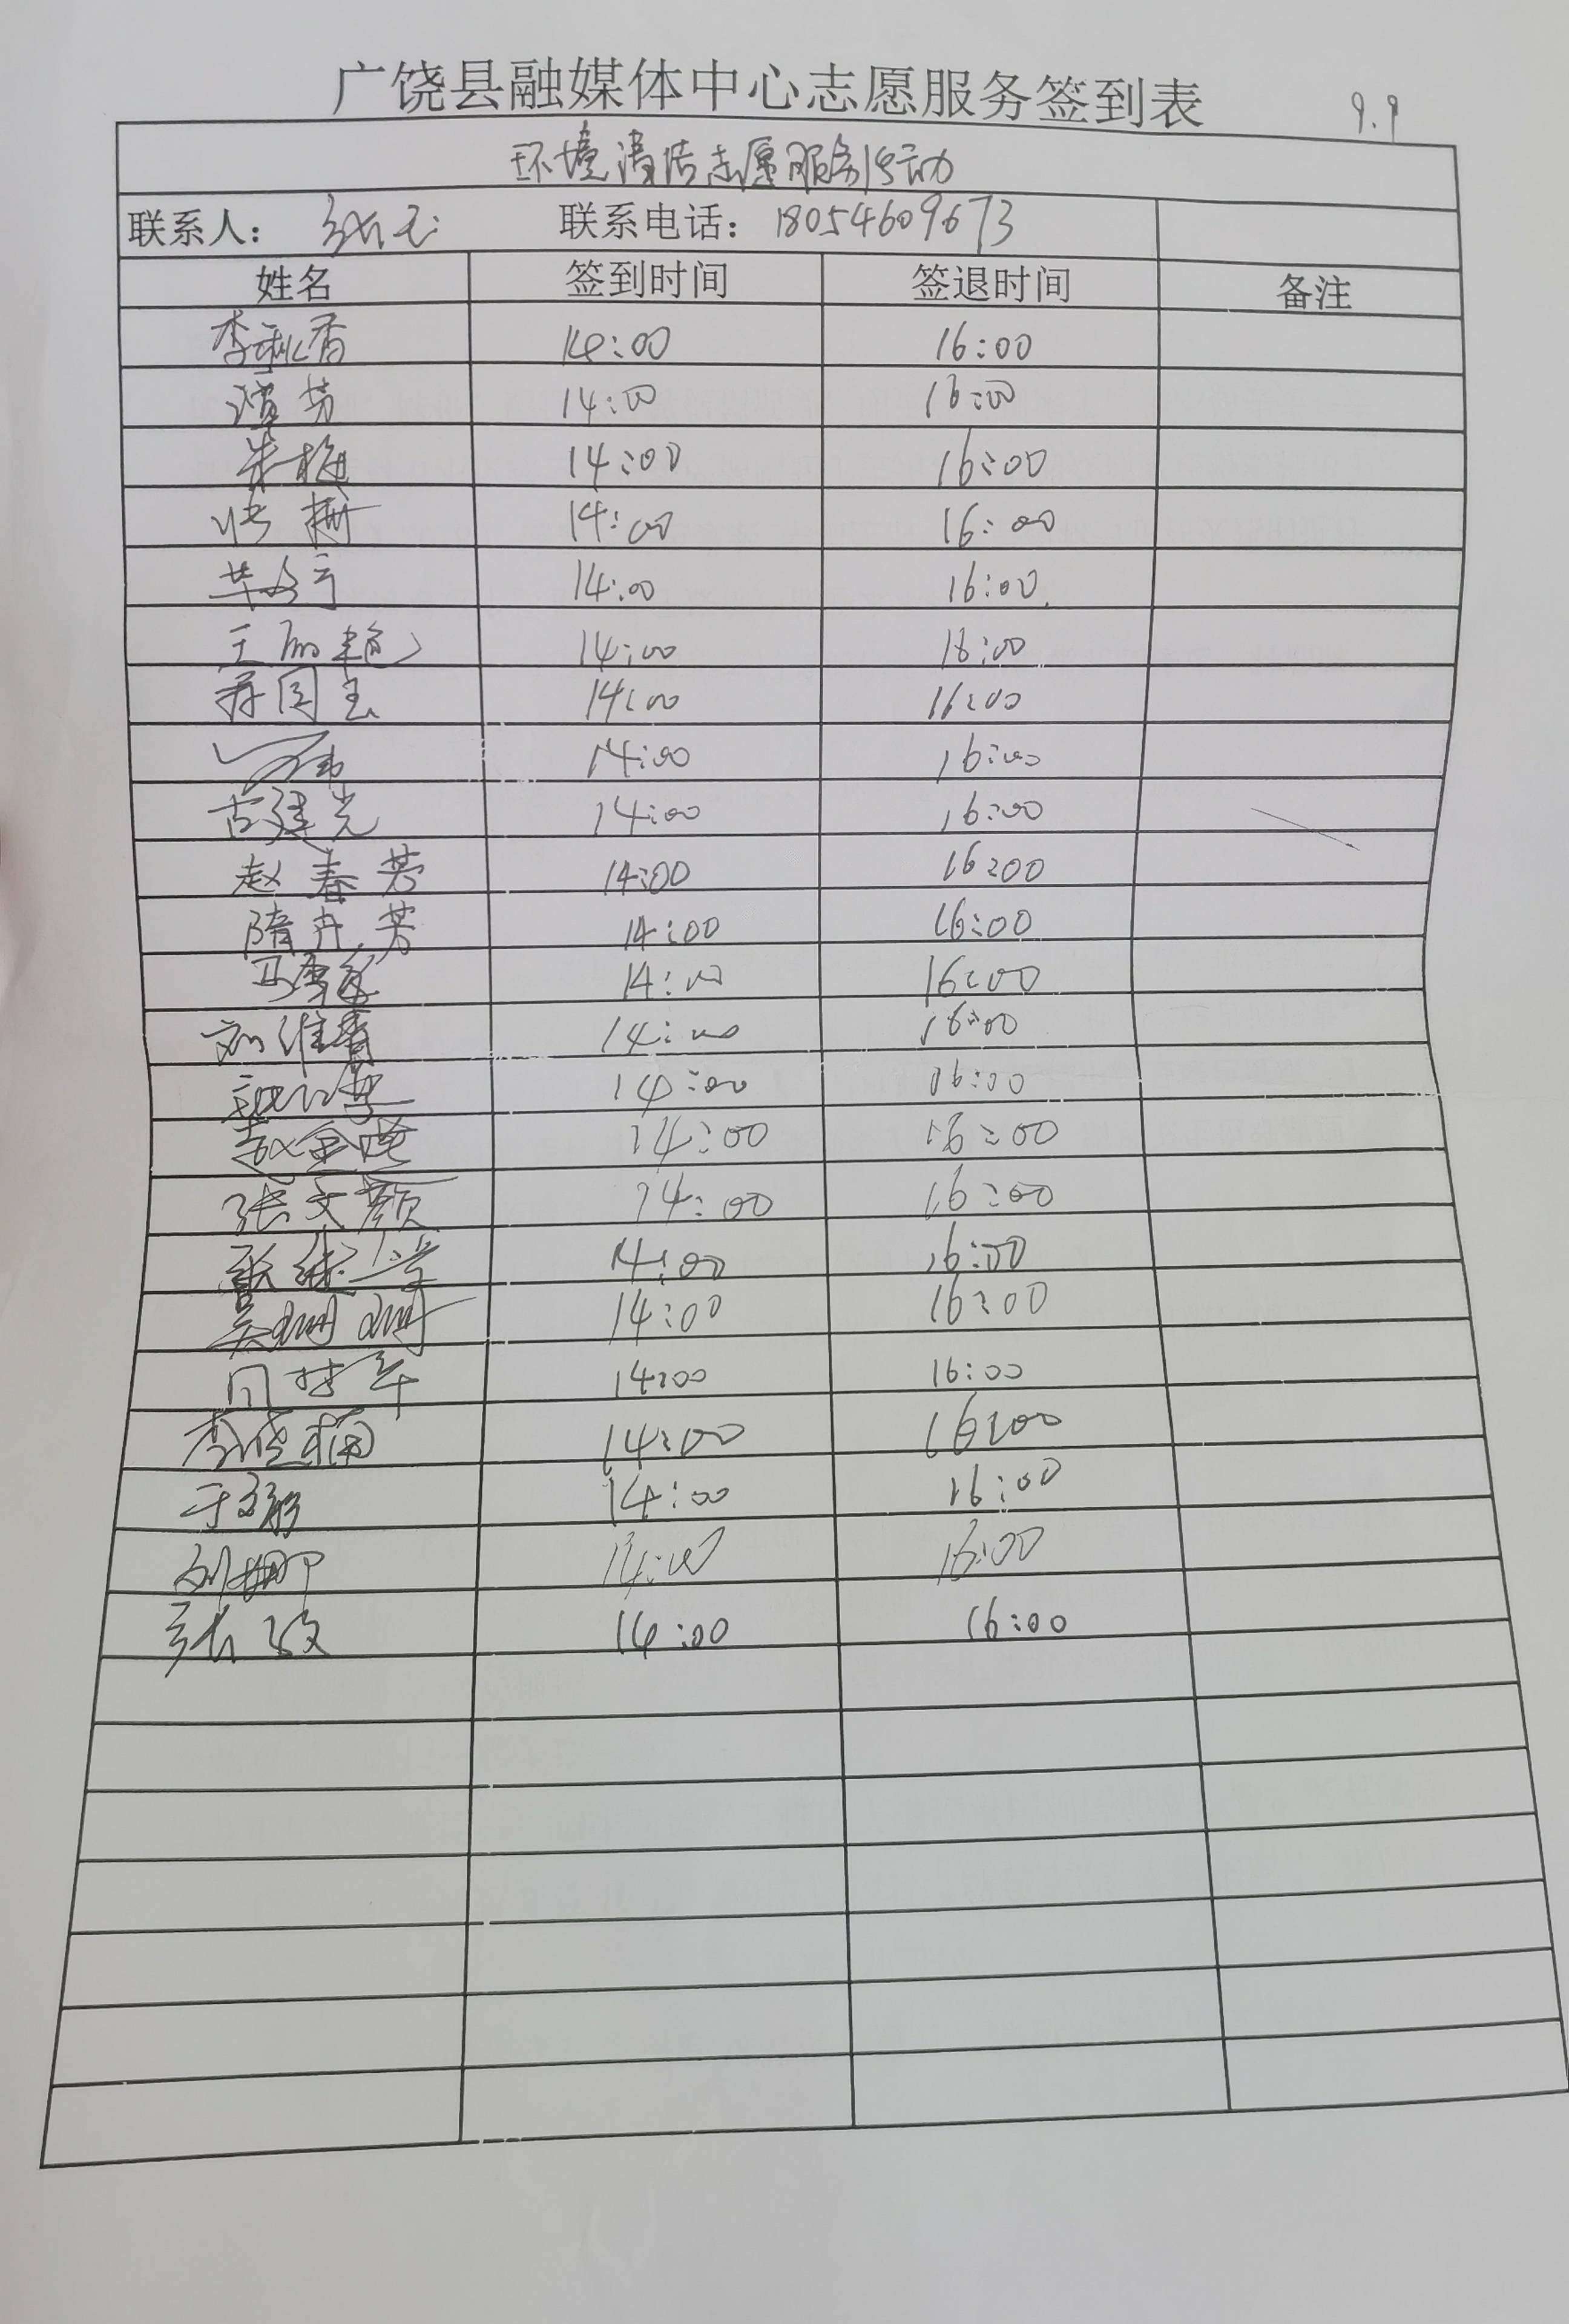 广饶县融媒体中心志愿服务签到表 9.9
环境清洁志愿服务活动
联系人： 联系电话：18054609673
姓名 签到时间 签退时间 备注
李秋香 14:00 16:00
芳 14:00 16:00
朱梅 14:00 16:00
张 14:00 16:00
14:00 16:00
王丽艳 14:00 16:00
国 14:00 16:00
14:00 16:00
古建光 14:00 16:00
赵春芳 14:00 16:00
隋丹芳 14:00 16:00
马 14:00 16:00
刘维青 14:00 16:00
14:00 16:00
赵金 14:00 16:00
张文颜 14:00 16:00
14:00 16:00
吴珊珊 14:00 16:00
14:00 16:00
李晓楠 14:00 16:00
于 14:00 16:00
刘娜 14:00 16:00
张 14:00 16:00